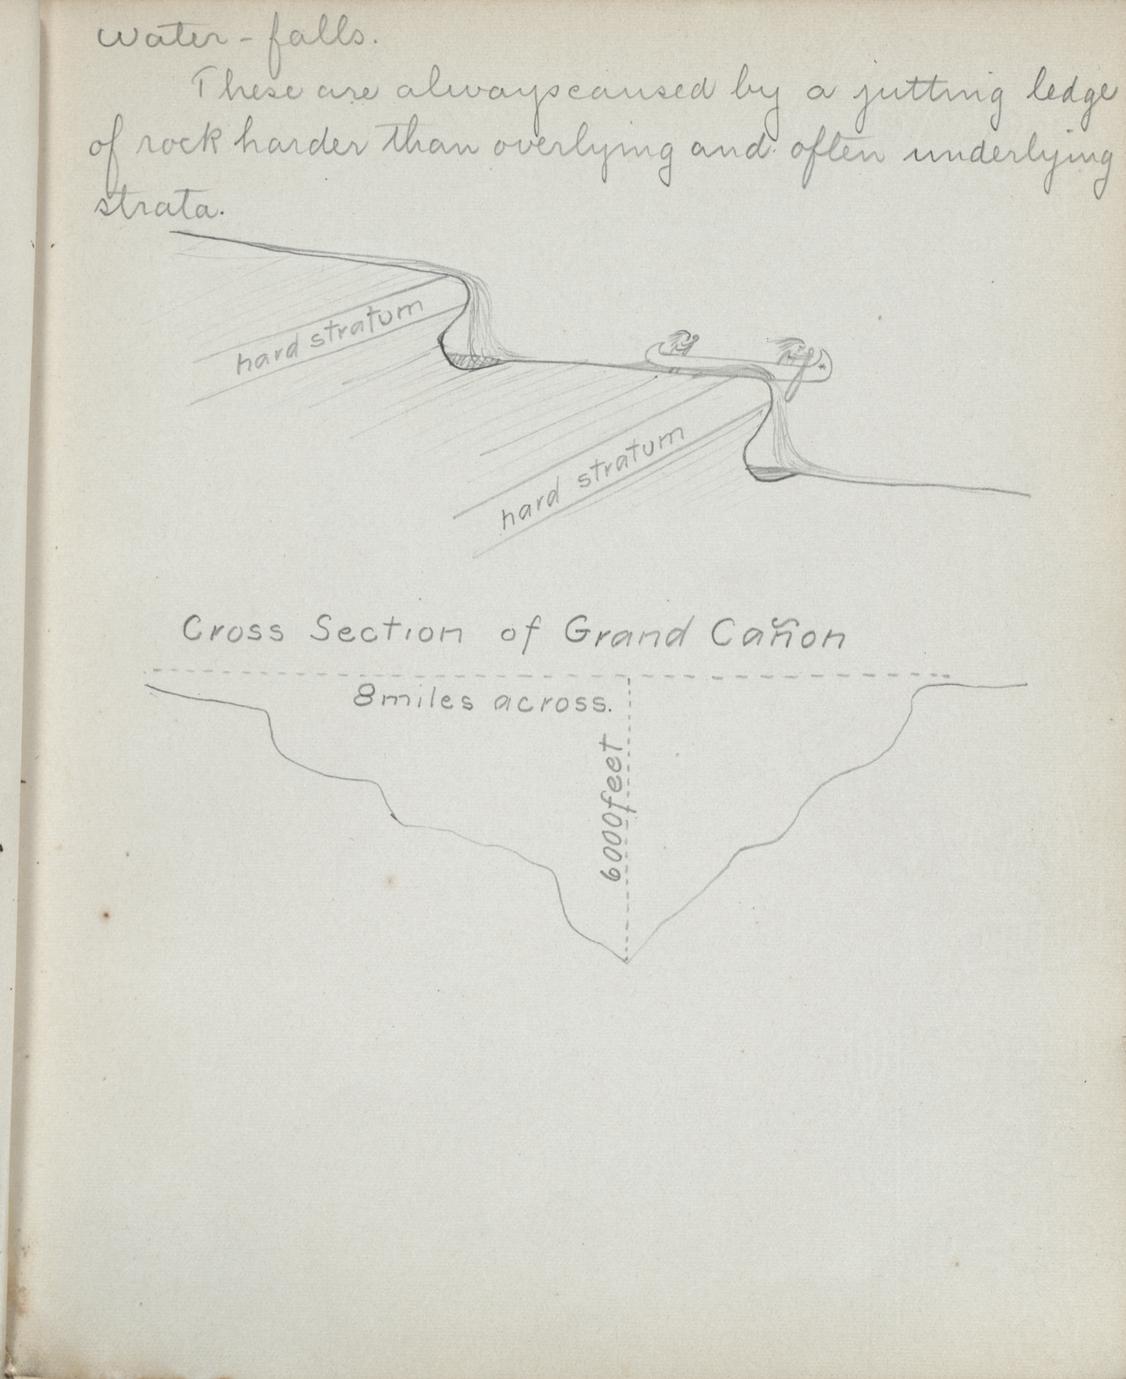 Water-falls.
These are always caused by a jutting ledge
of rock harder than overlying and often underlying
strata.
hard stratum
hard stratum
Cross Section of Grand Cañon
8 miles across.
6000 feet